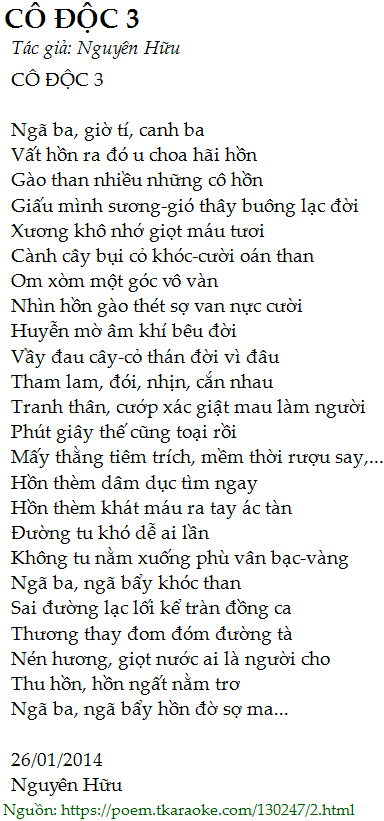 CÔ ĐỘC 3
Tác giả: Nguyên Hữu
CÔ ĐỘC 3
Ngã ba, giờ tí, canh ba
Vất hồn ra đó u choa hãi hồn
Gào than nhiều những cô hồn
Giấu mình sương-gió thây buông lạc đời
Xương khô nhớ giọt máu tươi
Cành cây bụi cỏ khóc-cười oán than
Om xòm một góc vô vàn
Nhìn hồn gào thét sợ van nực cười
Huyễn mờ âm khí bêu đời
Vầy đau cây-cỏ thán đời vì đâu
Tham lam, đói, nhịn, cắn nhau
Tranh thân, cướp xác giật mau làm người
Phút giây thế cũng toại rồi
Mấy thằng tiêm trích, mềm thời rượu say,...
Hồn thèm dâm dục tìm ngay
Hồn thèm khát máu ra tay ác tàn
Đường tu khó dễ ai lần
Không tu nằm xuống phù vân bạc-vàng
Ngã ba, ngã bẩy khóc than
Sai đường lạc lối kể tràn đồng ca
Thương thay đom đóm đường tà
Nén hương, giọt nước ai là người cho
Thu hồn, hồn ngất nằm trơ
Ngã ba, ngã bẩy hồn đờ sợ ma...
26/01/2014
Nguyên Hữu
Nguồn: https://poem.tkaraoke.com/130247/2.html